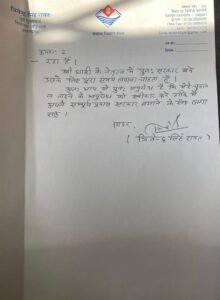 त्रिवेन्द्र सिंह रावत
क्रमशः 2
रहा है।
श्री धामी के नेतृत्व में पुनः सरकार बने
उसके लिए पूरा समय लगाना चाहता हूँ।
अतः आप से पुनः अनुरोध है कि मेरे चुनाव
न लड़ने के अनुरोध को स्वीकार करें ताकि मैं
अपने सम्पूर्ण प्रयास सरकार बनाने के लिए लगा
सकूँ।
सादर
( त्रिवेन्द्र सिंह रावत )